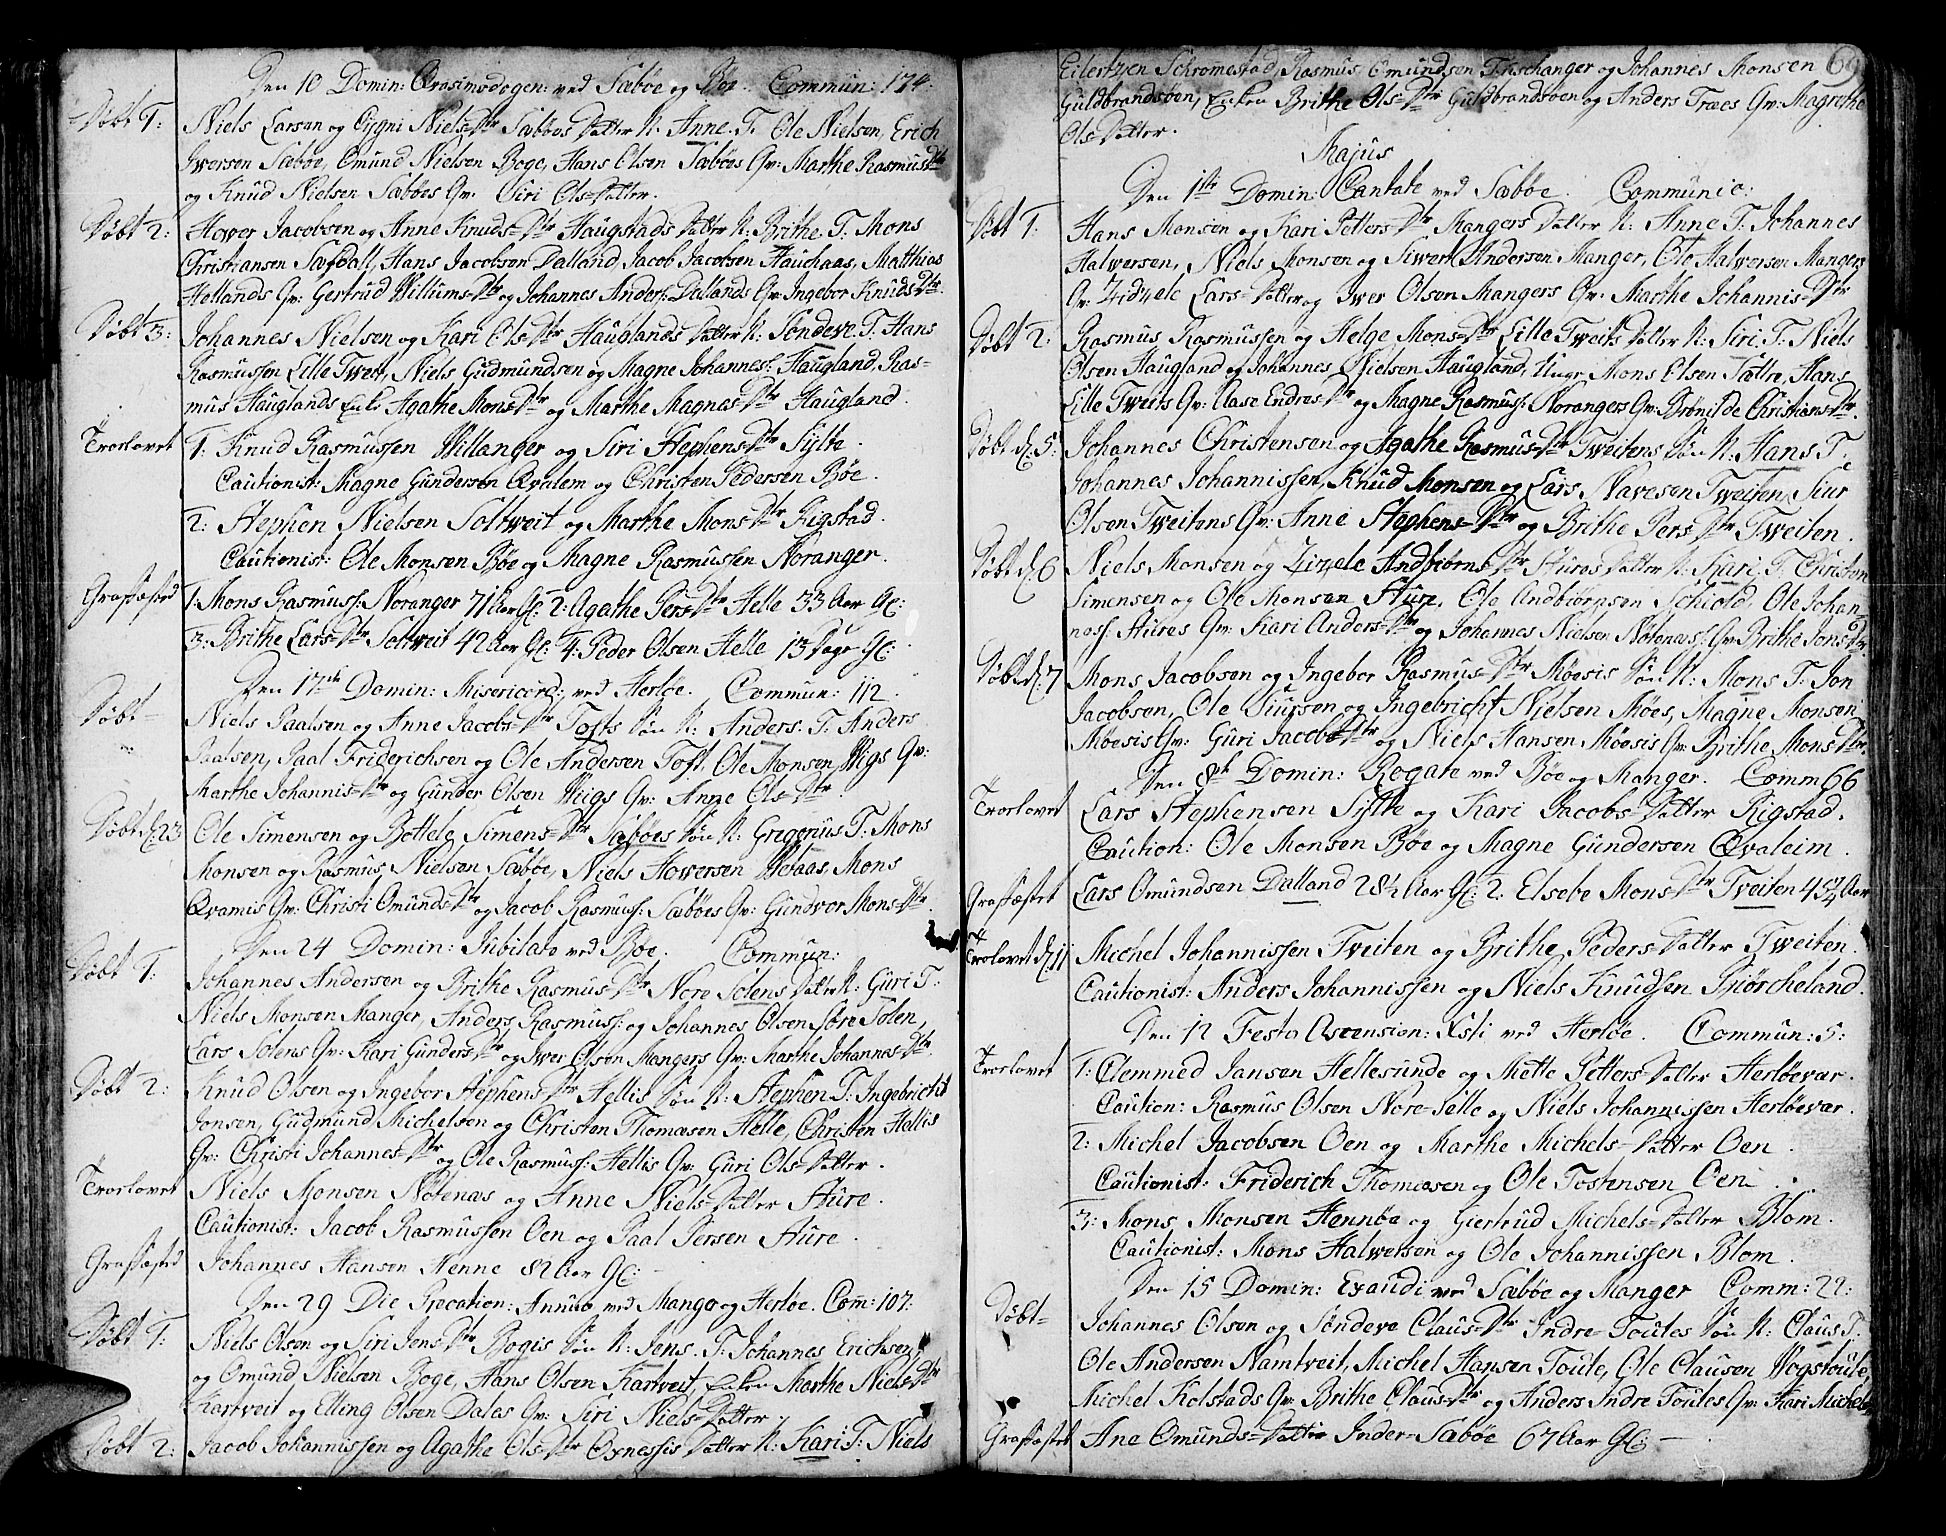 Den 10 Domin: Qvasimodogen: ved Sæbøe og Bøe. Commun: 174.
Døbt 1: Niels Larsen og Nielsdtr Sæbøes Datter N: Anne. T. Ole Nielsen, Erich
Iwersen Sæbøe, Omund Nielsen Boge, Hans Olsen Sæbøes Qv: Marthe Rasmusdtr
og Knud Nielsen Sæbøes Qv. Siri Ols-Datter.
Døbt 2: Hower Jacobsen og Anne Knuds-Dtr Haugstads Datter N: Brithe. T. Mons
Christiansen Sægdall, Hans Jacobsen Dalland, Jacob Jacobsen Hauchaas, Matthias
Hellands Qv: Gertrud Willums-Dtr og Johannes Anders: Dallands Qv: Ingebor Knuds-Dtr
Døbt 3: Johannes Nielsen og Kari Ols-Dtr Hauglands Datter N: Søndeve. T. Hans
Rasmussen Lille Twet, Niels Gudmundsen og Magne Johannes: Haugland, Ras-
mus Hauglands Enke Agathe Mons-Dtr og Marthe Magnes-Dtr Haugland.
Troelovet 1: Knud Rasmussen Willanger og Siri Stephens-Dtr Sylte.
Cautionist: Magne Gundersen Qvalem og Christen Pedersen Bøe.
2: Stephen Nielsen Soltweit og Marthe Mons-Dtr Rigstad.
Cautionist: Ole Monsen Bøe og Magne Rasmussen Noranger.
Graffæsted 1: Mons Rasmuss: Noranger 71 Aar Gl: 2: Agathe Pers-Dtr Helle 33 Aar Gl:
3: Brithe Lars-Dtr Soltveit 42 Aar Gl: 4: Peder Olsen Helle 13 Dage Gl:
Den 17de Domin: Misericord: ved Herløe. Commun: 112.
Døbt- Niels Paalsen og Anne Jacobs-Dtr Tofts Søn N: Anders. T. Anders
Paalsen, Paal Friderichsen og Ole Andersen Toft, Ole Monsen Wigs Qv:
Marthe Johannis-Dtr og Gunder Olsen Wigs Qv: Anne Ols-Dtr.
Døbt d: 23 Ole Simensen og Bottele Simens-Dtr Sæbøes Søn N: Gregerius T: Mons
Monsen og Rasmus Nielsen Sæbøe, Niels Howersen Mons
Qvamis Qv: Christi Omunds-Dtr og Jacob Rasmuss: Sæbøes Qv: Gundvor Mons-Dtr.
Den 24 Domin: Jubilate ved Bøe. Commun:
Døbt 1: Johannes Andersen og Brithe Rasmus-Dtr Nore Solens Datter N: Guri T:
Niels Monsen Manger, Anders Rasmuss: og Johannes Olsen Nore Solen,
Lars Solens Qv: Kari Gunders-Dtr og Iwer Olsen Mangers Qv: Marthe Johannes-Dtr.
Døbt 2: Knud Olsen og Ingebor Stephens-Dtr Hellis Søn N: Stephen T: Ingebricht
Jonsen, Gudmund Michelsen og Christen Thomæsen Helle, Christen Hellis
Qv: Christi Johannes-Dtr og Ole Rasmuss: Hellis Qv: Guri Ols-Datter.
Troelovet Niels Monsen Nøtenæs og Anne Niels-Datter Sture.
Cautionist: Jacob Rasmussen Oen og Paal Persen Sture.
Grafsæsted Johannes Hansen Nenne 82 Aar Gl:
Den 29 Die Precation: Annuo ved Manger og Herløe. Com: 107:
Døbt 1: Niels Olsen og Siri Jens-Dtr Bogis Søn N: Jens. T. Johannes Erichsen
og Omund Nielsen Boge, Hans Olsen Kartveit, Enken Marthe Niels-Dtr
Kartveit og Elling Olsen Dales Qv: Siri Niels-Datter.
Døbt 2: Jacob Johannissen og Agathe Ols-Dtr Oxnessis Datter N: Kari T: Niels
69
Eilertzen Schromestad, Rasmus Omundsen Tuschanger og Johannes Monsen
Guldbrandsøen, Enken Brithe Ols-Dtr Guldbrandsøen og Anders Træes Qv: Magrethe
Ols-Datter.
Majus
Den 1ste Domin: Cantate ved Sæbøe. Communic:
Døbt 1: Hans Monsen og Kari Petters-Dtr Mangers Datter N: Anne T: Johannes
Halwersen, Niels Monsen og Siwert Andersen Manger, Ole Halwersen Mangers
Qv: Lars-Datter og Iwer Olsen Mangers Qv: Marthe Johannis-Dtr
Døbt 2: Rasmus Rasmussen og Helge Mons-Dtr Lille Tweits Datter N: Siri. T. Niels
Olsen Haugland og Johannes Nielsen Haugland, Unge Mons Elsen Sættre, Hans
Lille Tweits Qv: Aase Endres-Dtr og Magne Rasmuss: Norangers Qv: Brønilde Christians-Dtr.
Døbt d: 5: Johannes Christensen og Agathe Rasmus-Dtr Tweitens Søn N: Hans T.
Johannes Johannissen, Knud Monsen og Lars Navesen Tweiten, Siur
Olsen Tweitens Qv: Anne Stephens-Dtr og Brithe Pers-Dtr Tweiten.
Døbt d: 6 Niels Monsen og Zizele Andbiørns-Dtr Stures Datter N: Kari. T. Christen
Simensen og Ole Monsen Sture, Ole Andbiørnsen Schiold, Ole Johan-
ness: Stures Qv: Kari Anders-Dtr og Johannes Nielsen Nøtenæs: Qv: Brithe Jons-Dtr.
Døbt d: 7 Mons Jacobsen og Ingebor Rasmus-Dtr Møesis Søn N: Mons T: Jon
Jacobsen, Ole Siursen og Ingebricht Nielsen Møes, Magne Monsen
Møesis Qv: Guri Jacobs-Dtr og Niels Hansen Møesis Qv: Brithe Mons-Dtr.
Den 8de Domin: Rogate ved Bøe og Manger. Comm 66
Troelovet Lars Stephensen Sylte og Kari Jacobs-Datter Rigstad.
Caution: Ole Monsen Bøe og Magne Gundersen Qvaleim.
Grafsæstet Lars Omundsen Dalland 28½ Aar Gl: 2: Elsebe Mons-Dtr Tveiten 45¼ Aar
Troelovet d: 11 Michel Johannissen Tveiten og Brithe Peders-Datter Tweiten.
Cautionist: Anders Johannissen og Niels Knudsen Biørcheland.
Den 12 Festo Ascension: Xsti ved Herløe. Commun: 5:
Troelovet 1: Clemmed Jansen Hellesunde og Mette Petters-Datter Herløevær.
Caution: Rasmus Olsen Nore-Selle og Niels Johannissen Herløevær.
2: Michel Jacobsen Oen og Marthe Michels-Datter Oen.
Cautionist: Friderich Thomæsen og Ole Tostensen Oen.
3: Mons Monsen Hennøe og Giertrud Michels-Datter Blom.
Cautionist: Mons Halwersen og Ole Johannissen Blom.
Den 15 Domin: Exaudi ved Sæbøe og Manger Comm: 22:
Døbt- Johannes Olsen og Søndeve Claus-Dtr Indre-Toules Søn N: Claus T:
Ole Andersen Namtveit, Michel Hansen Toule, Ole Clausen Wogstoule,
Michel Kolstads Qv: Brithe Claus-Dtr og Anders Indre Toules Qv: Kari Michels
Grafsæstet Ane Omunds-Datter Inder-Sæbøe 67 Aar Gl: